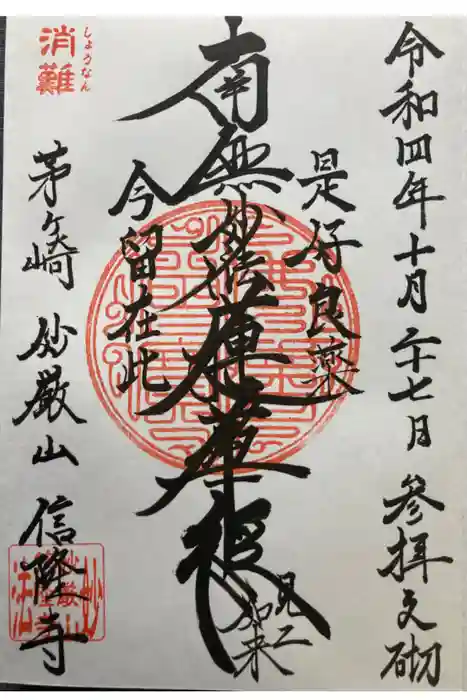 令和四年十月二十七日 参拝之砌
是好良薬
南無妙法蓮華経
見二
如来
今留在此
しょうなん
消難
茅ヶ崎 妙厳山 信隆寺
妙
法